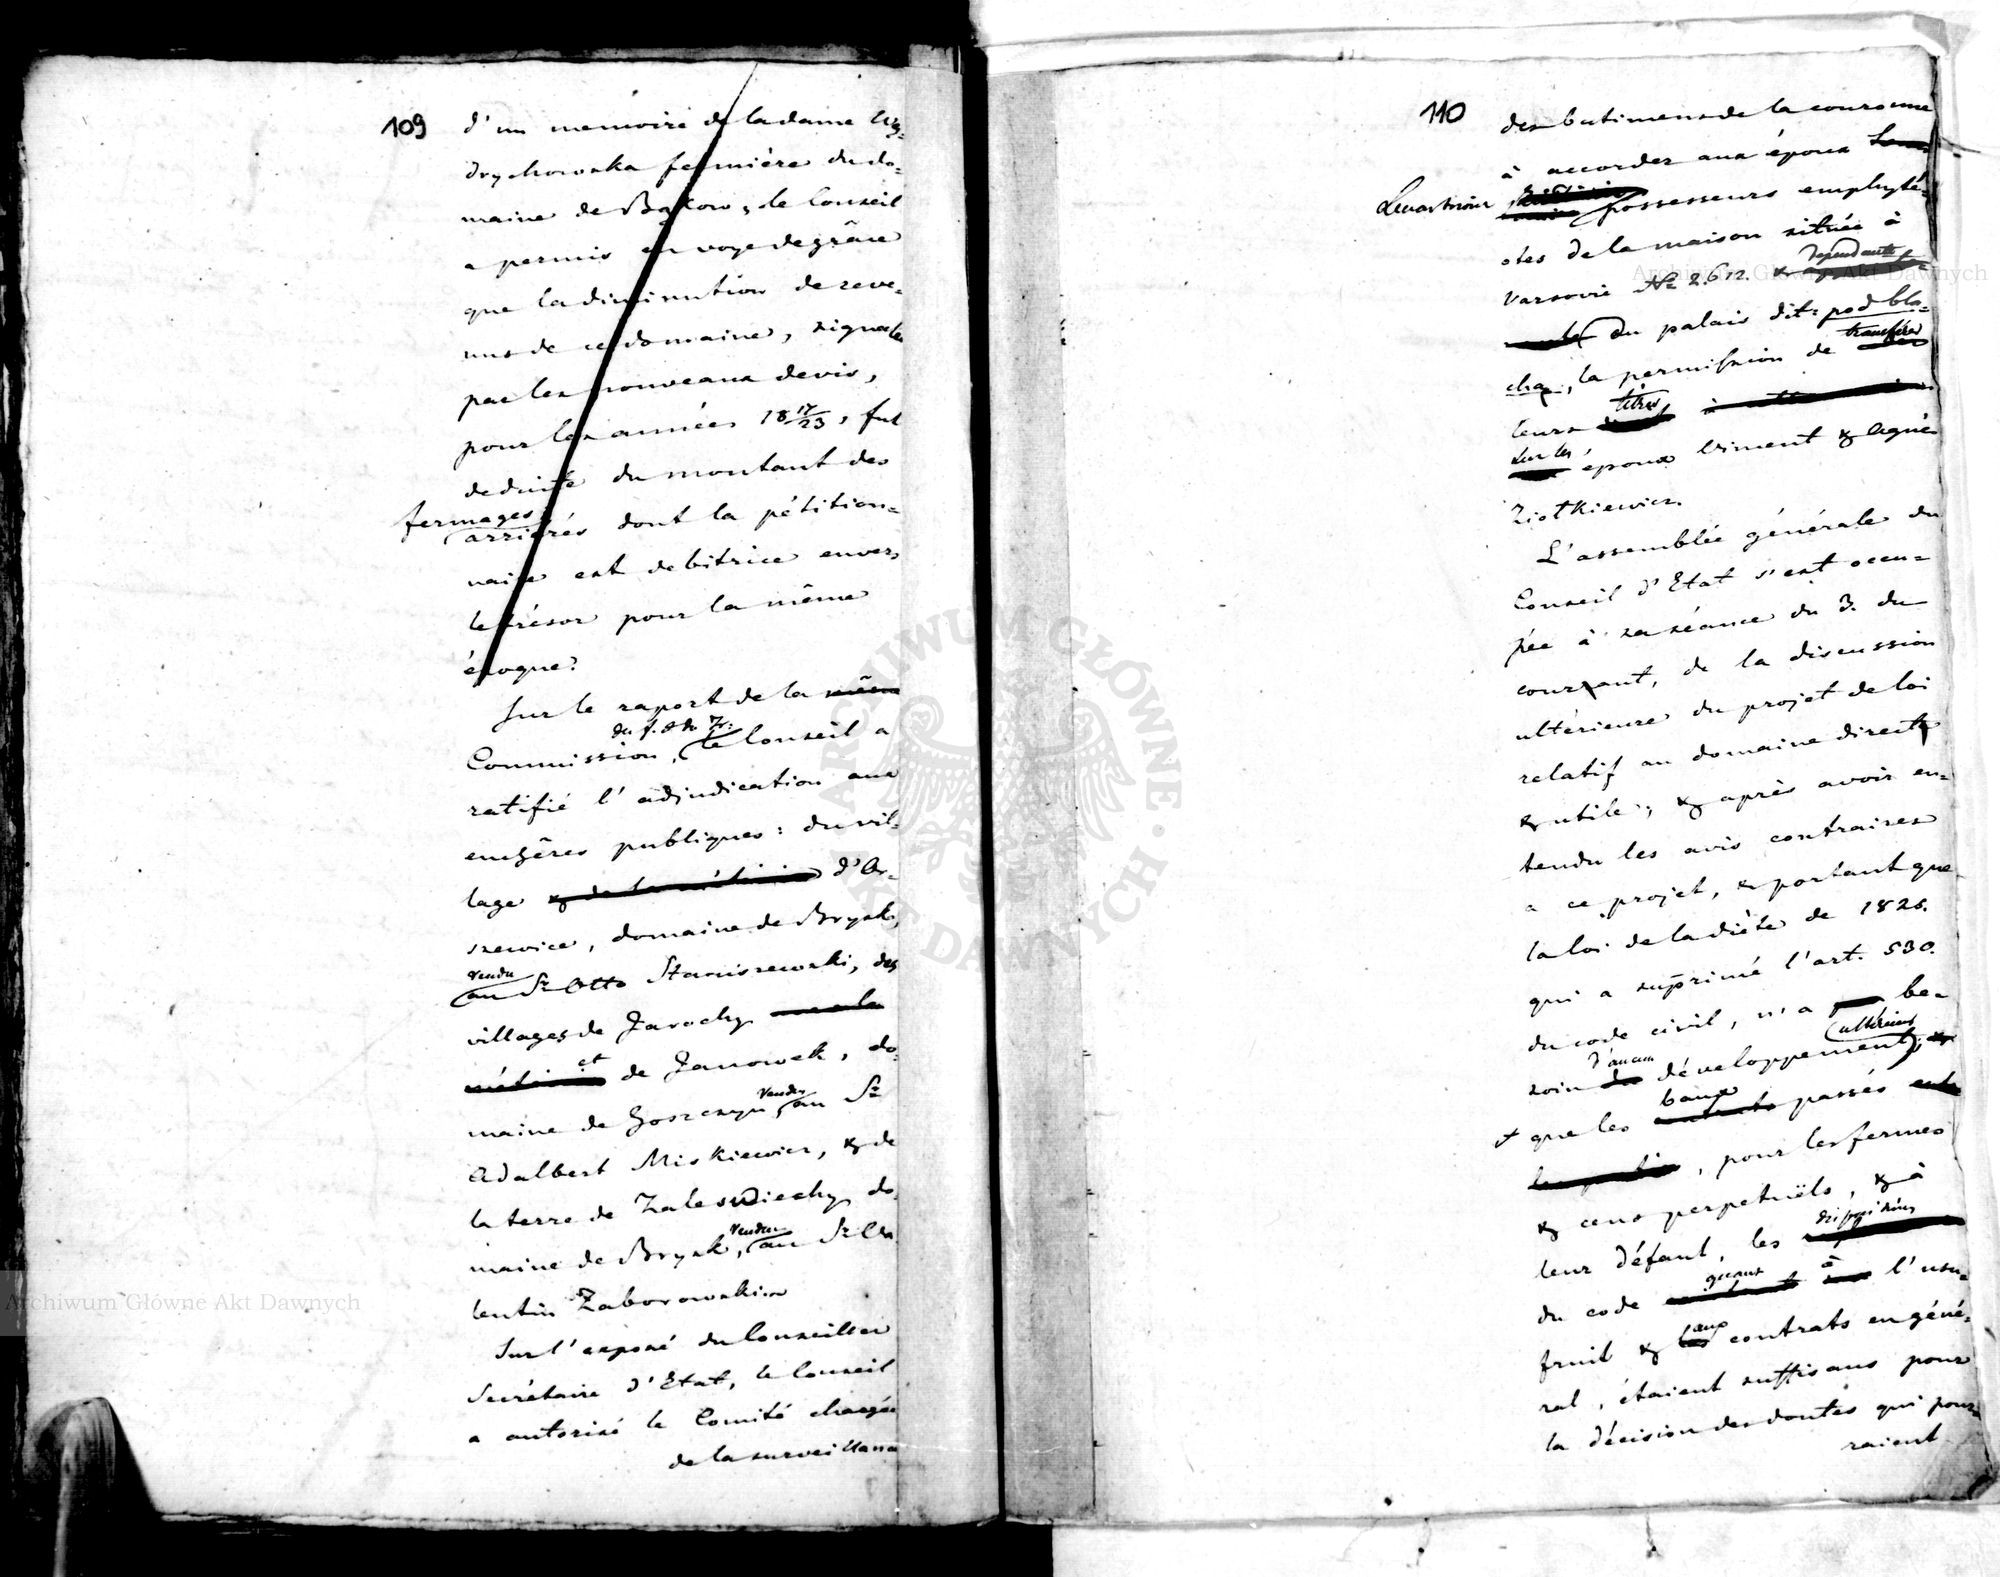 109
d'un memoire de la dame Wy-
drychowska fermière du do-
maine de Bąkow, le Conseil
a permis en voye de grâce
que la diminution de reve-
nus de ce domaine, signalée
par les nouveaux devis,
pour les années 18 17/23, fut
deduite du montant des
fermages
arriérés dont la pétition-
naire est debitrice envers
le trésor pour la même
époque.
Sur le raport de la même
du f. & du Tr.
Commission, le Conseil a
ratifié l'adjudication aux
enchères publiques: du vil-
lage & de la métairie d'Or-
szewice, domaine de Brysk,
vendu
au Sr Otto Staniszewski, des
villages de Jarochy
et
de Janowek, do-
maine de Goszczyn, vendu au Sr
Adalbert Miskiewicz, & de
la terre de Zalesudiechy do-
maine de Brysk, vendu au Sr Va-
lentin Zaborowski.
Sur l'exposé du Conseiller
Secrétaire d'Etat, le Conseil
a autorisé le Comité chargée
de la surveillance
110
des batimens de la couronne
à accorder aux époux
possesseurs emphyté-
otes de la maison située à
Varsovie No 2612. dependante
du palais dit: pod bla-
chą, la permission de transférer
leurs titres
sur les époux Vincent & Agnès
Ziotkiewicz.
L'assemblée générale du
Conseil d'Etat s'est occu-
pée à sa séance du 3. du
courrant, de la discussion
ultérieure du projet de loi
relatif au domaine direct
& utile; & après avoir en-
tendu les avis contraires
a ce projet, & portant que
la loi de la diète de 1825.
qui a suprimé l'art. 530.
du code civil, n'a be-
ultérieur
soin d'aucun développement;
& que les baux passés
, pour les fermes
& cens perpetuëls, & à
leur défaut, les dispositions
du code quant à l'usu-
fruit & aux contrats en géné-
ral, étaient suffisans pour
la décision des doutes qui pour-
raient
Archiwum Główne Akt Dawnych
Archiwum Główne Akt Dawnych
ARCHIWUM GŁÓWNE AKT DAWNYCH